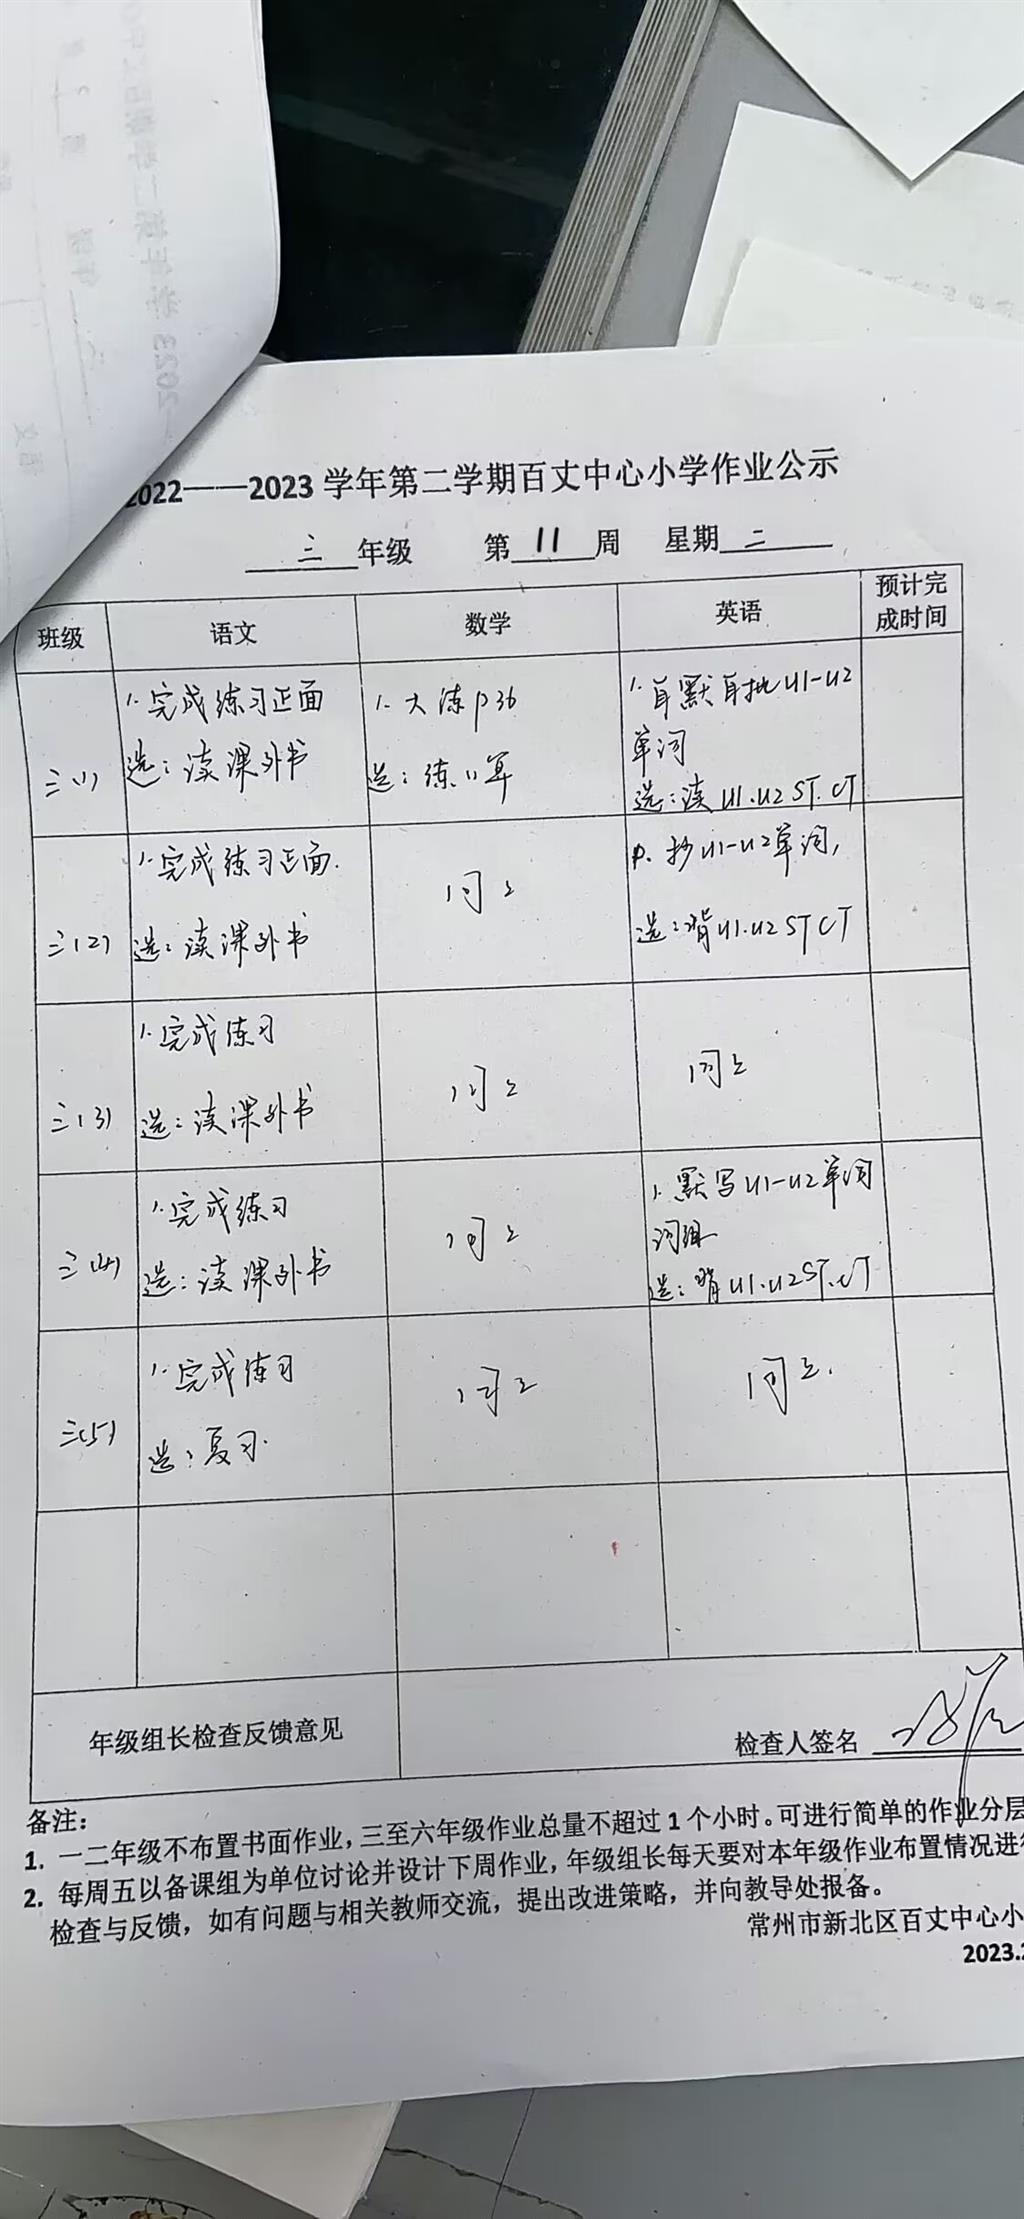 2022——2023学年第二学期百丈中心小学作业公示
三 年级 第 11 周 星期 二
班级 语文 数学 英语 预计完成时间
三(1)
1.完成练习正面
选:读课外书
1.大练p36
选:练口算
1.自默自批U1-U2
单词
选:读U1.U2 ST.CT
三(2)
1.完成练习正面.
选:读课外书
同上
抄U1-U2单词,
选:背U1.U2 ST CT
三(3)
1.完成练习
选:读课外书
同上
同上
三(4)
1.完成练习
选:读课外书
同上
1.默写U1-U2单词
词组
选:背U1.U2ST.CT
三(5)
1.完成练习
选:复习.
同上
同上.
年级组长检查反馈意见
检查人签名
备注:
1. 一二年级不布置书面作业,三至六年级作业总量不超过1个小时。可进行简单的作业分层
2. 每周五以备课组为单位讨论并设计下周作业,年级组长每天要对本年级作业布置情况进行
检查与反馈,如有问题与相关教师交流,提出改进策略,并向教导处报备。
常州市新北区百丈中心小
2023.